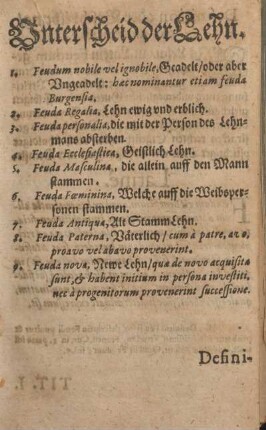 Vnterscheid der Lehn.
1. Feudum nobile vel ignobile, Geadelt/oder aber
Vngeadelt: hæc nominantur etiam feuda
Burgensia,
2. Feuda Regalia, Lehn ewig vnd erblich.
3. Feuda personalia, die mit der Person des Lehn-
mans absterben.
4. Feuda Ecclesiastica, Geistlich Lehn.
5. Feuda Masculina, die allein auff den Mann
stammen.
6. Feuda Fœminina, Welche auff die Weibsper-
sonen stammen.
7. Feuda Antiqua, Alt StammLehn.
8. Feuda Paterna, Väterlich/cum à patre, avo,
proavo vel abavo provenerint.
9. Feuda nova, Newe Lehn/quæ de novo acquisita
sunt, & habent initium in persona investiti,
nec à progenitorum provenerint successione.
Defini-